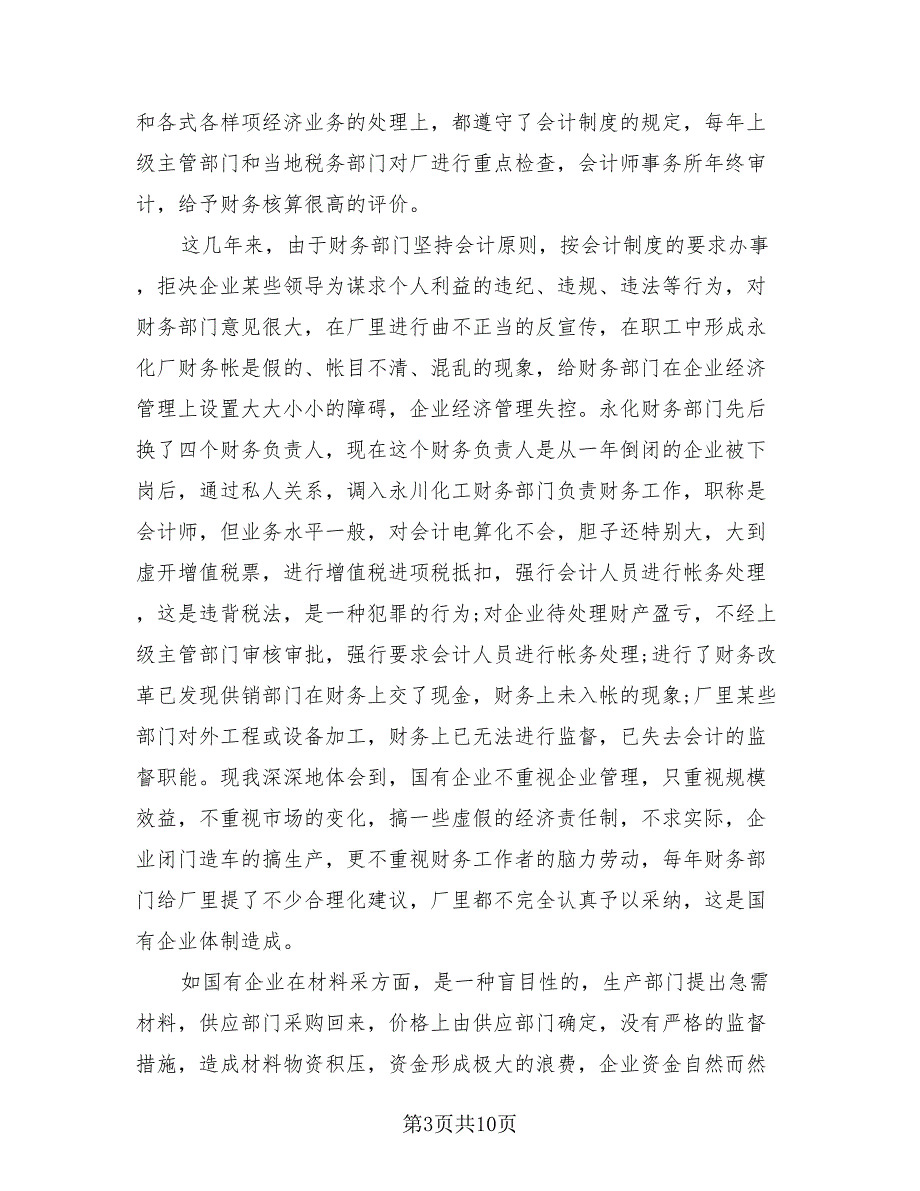 和各式各样项经济业务的处理上，都遵守了会计制度的规定，每年上
级主管部门和当地税务部门对厂进行重点检查，会计师事务所年终审
计，给予财务核算很高的评价。
这几年来，由于财务部门坚持会计原则，按会计制度的要求办事
，拒决企业某些领导为谋求个人利益的违纪、违规、违法等行为，对
财务部门意见很大，在厂里进行曲不正当的反宣传，在职工中形成永
化厂财务帐是假的、帐目不清、混乱的现象，给财务部门在企业经济
管理上设置大大小小的障碍，企业经济管理失控。永化财务部门先后
换了四个财务负责人，现在这个财务负责人是从一年倒闭的企业被下
岗后，通过私人关系，调入永川化工财务部门负责财务工作，职称是
会计师，但业务水平一般，对会计电算化不会，胆子还特别大，大到
虚开增值税票，进行增值税进项税抵扣，强行会计人员进行帐务处理
，这是违背税法，是一种犯罪的行为;对企业待处理财产盈亏，不经上
级主管部门审核审批，强行要求会计人员进行帐务处理;进行了财务改
革已发现供销部门在财务上交了现金，财务上未入帐的现象;厂里某些
部门对外工程或设备加工，财务上已无法进行监督，已失去会计的监
督职能。现我深深地体会到，国有企业不重视企业管理，只重视规模
效益，不重视市场的变化，搞一些虚假的经济责任制，不求实际，企
业闭门造车的搞生产，更不重视财务工作者的脑力劳动，每年财务部
门给厂里提了不少合理化建议，厂里都不完全认真予以采纳，这是国
有企业体制造成。
如国有企业在材料采方面，是一种盲目性的，生产部门提出急需
材料，供应部门采购回来，价格上由供应部门确定，没有严格的监督
措施，造成材料物资积压，资金形成极大的浪费，企业资金自然而然
第3页共10页